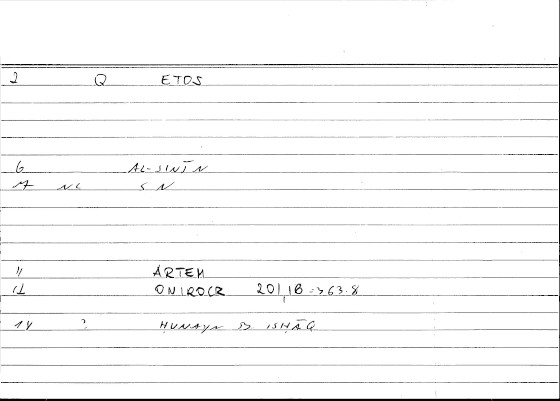 2 Q ETOS
6 AL-SINĪN
NL SN
11 ARTEM
12 ONIROCR 20,18 => 63.8
14 ? HUNAYN B ISHĀQ